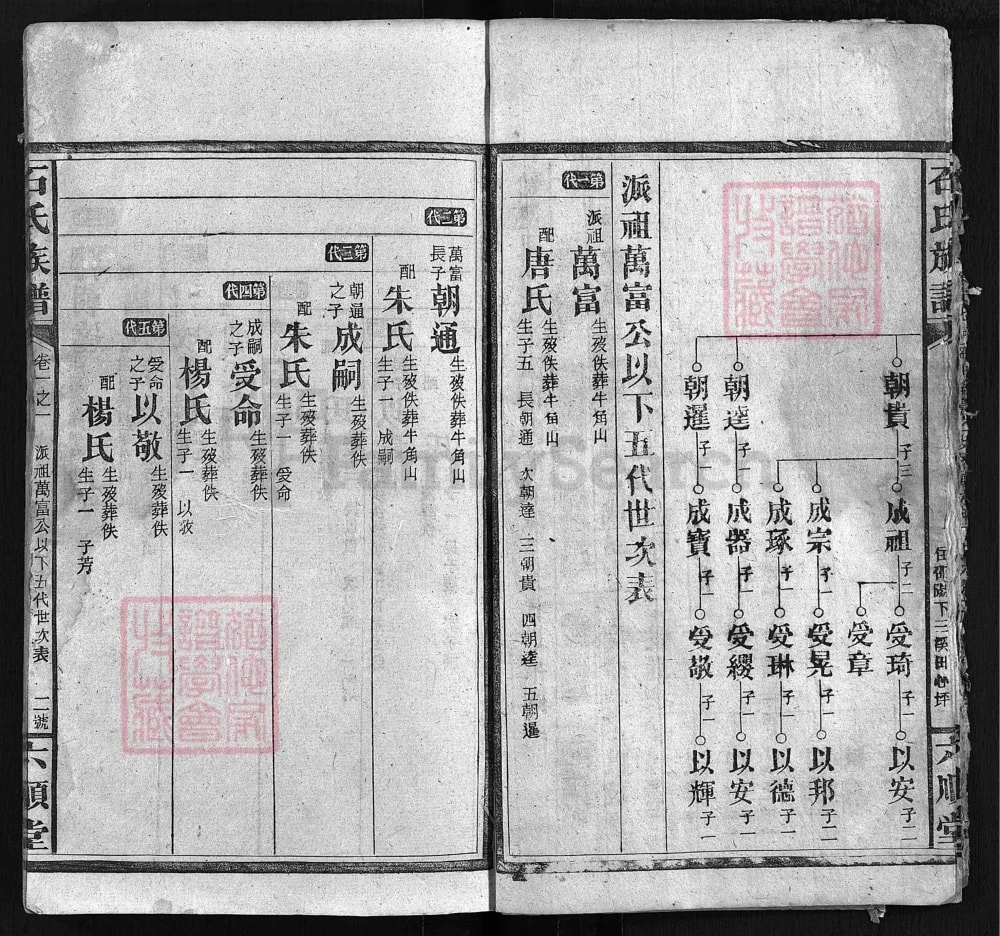 石氏族譜
六順堂
朝貴 子三
成祖 子二
受琦 子一
以安 子二
受章
成宗 子一
受晃 子一
以邦 子一
成琢 子一
受琳 子一
以德 子一
朝達 子一
成器 子一
受纓 子一
以安 子一
朝暹 子一
成寶 子一
受敬 子一
以輝 子一
派祖萬富公以下五代世次表
第一代
派祖萬富 生殁佚葬牛角山
配唐氏 生殁佚葬牛角山
生子五 長朝通 次朝達 三朝貴 四朝達 五朝暹
第二代
萬富長子朝通 生殁佚葬牛角山
配朱氏 生殁佚葬牛角山
生子一 成嗣
第三代
朝通之子成嗣 生殁葬佚
配朱氏 生殁葬佚
生子一 受命
第四代
成嗣之子受命 生殁葬佚
配楊氏 生殁葬佚
生子一 以敬
第五代
受命之子以敬 生殁葬佚
配楊氏 生殁葬佚
生子一 子芳
石氏族譜
卷一之一
派祖萬富公以下五代世次表
二號
六順堂
FamilySearch